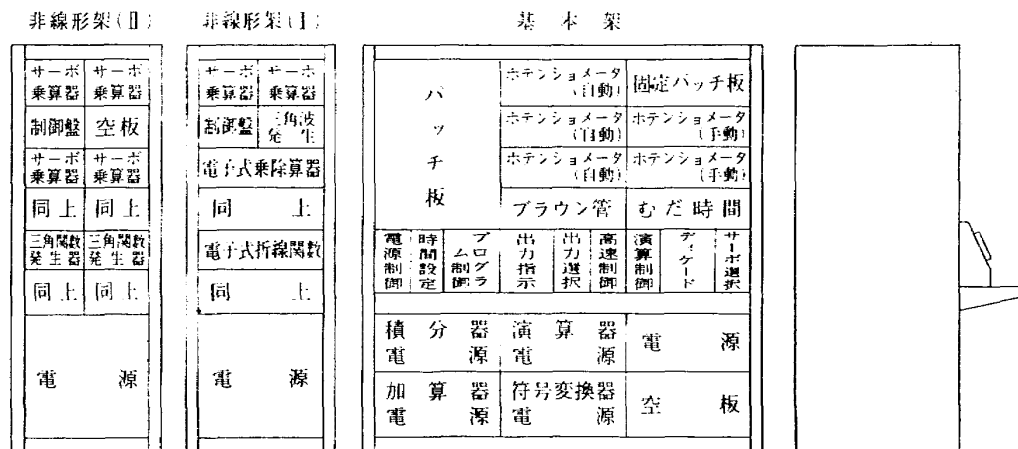 非線形架(Ⅱ)
サーボ
乗算器
サーボ
乗算器
制御盤
空板
サーボ
乗算器
サーボ
乗算器
同上
同上
三角関数
発生器
三角関数
発生器
同上
同上
電源
非線形架(Ⅰ)
サーボ
乗算器
サーボ
乗算器
制御盤
三角波
発生
電子式乗除算器
同上
電子式折線関数
同上
電源
基本架
パッチ板
ホテンショメータ
(自動)
固定パッチ板
ホテンショメータ
(自動)
ホテンショメータ
(手動)
ホテンショメータ
(自動)
ホテンショメータ
(手動)
ブラウン管
むだ時間
電源制御
時間設定
プログラ
ム制御
出力指示
出力選択
高速制御
演算制御
ディケード
サーボ選択
積分器
電源
演算器
電源
電源
加算器
電源
符号変換器
電源
空板